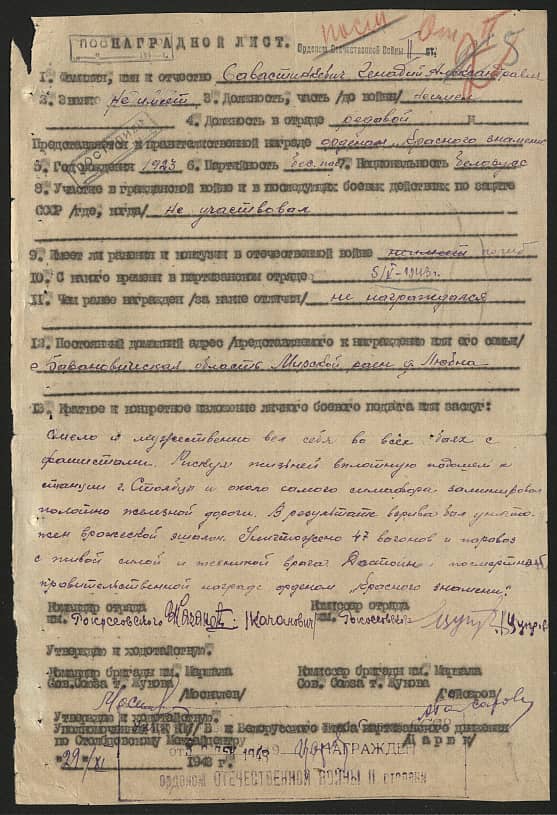 посм От. II
НАГРАДНОЙ ЛИСТ.
Орденом Отечественной Войны II ст.
1. Фамилия, имя и отчество Савастинкевич Генадий Александрович
2. Звание Не имеет 3. Должность, часть /до войны/
4. Должность в отряде рядовой
Представляется к правительственной награде орденом "Красного знамени
5. Год рождения 1923 6. Партийность бес.парт 7. Национальность белорус
8. Участие в гражданской войне и в последующих боевых действиях по защите
СССР /где, когда/ Не участвовал
9. Имеет ли ранения и контузии в отечественной войне погиб
10. С какого времени в партизанском отряде 5/V-1943г.
11. Чем ранее награжден /за какие отличия/ не награждался
12. Постоянный домашний адрес /представляемого к награждению или его семьи/
Барановичская область Мирской район д. Любна
13. Краткое и конкретное изложение личного боевого подвига или заслуг:
Смело и мужественно вел себя во всех боях с
фашистами. Рискуя жизней вплотную подошел к
станции г. Столбцы и около самого симафора заминировал
полотно железной дороги. В результате взрыва был уничто-
жен вражеской эшелон. Уничтожено 47 вагонов и паровоз
с живой силой и техникой врага. Достоин посмертной
правительственной награде орденом "Красного знамени".
Командир отряда Комиссар отряда
им. Рокоссовского /Качанович/ им. Рокоссовского
Утверждаю и ходотайствую.
Командир бригады им. Маршала Комиссар бригады им. Маршала
Сов. Союза т. Жукова Сов. Союза т. Жукова
Утверждаю и ходотайствую.
Белорусского Штаба партизанского движения
по Столбцовскому Межрайцентру
"29"/XI 1943 г. НАГРАЖДЕН
орденом ОТЕЧЕСТВЕННОЙ ВОЙНЫ II степени